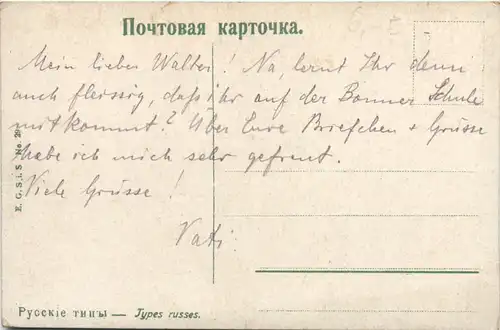 Почтовая карточка.
Mein lieber Walter! Na, lernt Ihr denn
auch fleissig, daß ihr auf der Bonner Schule
mitkommt? Über Eure Briefchen + Grüsse
habe ich mich sehr gefreut.
Viele Grüsse!
Vati
E. G. S. i. S. No. 29
Русскіе типы — Types russes.